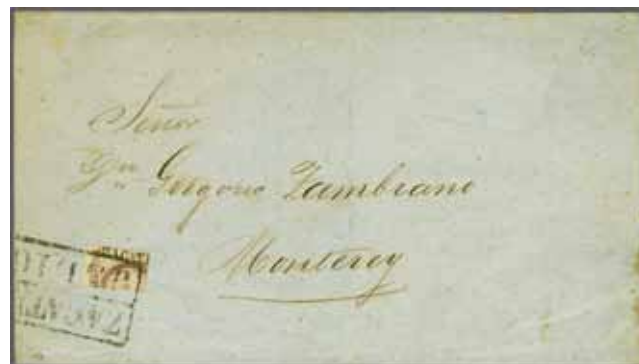 Señor
Dn Gregorio Zambrano
Monterey